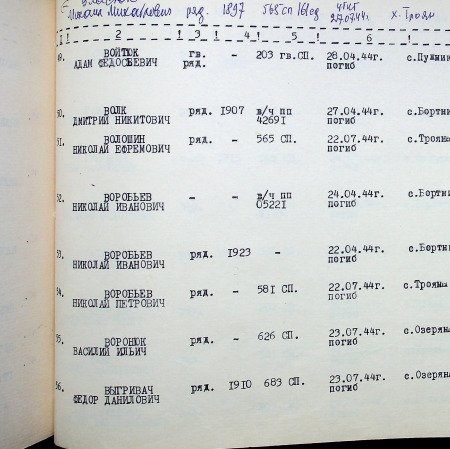 Михаил Михайлович ряд. 1897 565 сп 161 сд 27.07.44г. х. Троян
! 2 ! 3 ! 4 ! 5 ! 6 !
49. ВОЙТЮК гв. - 203 гв.СП. 28.04.44г. с.Пужник
АДАМ ФЕДОСЬЕВИЧ ряд. погиб
50. ВОЛК ряд. 1907 в/ч пп 27.04.44г. с.Бортник
ДМИТРИЙ НИКИТОВИЧ 42691 погиб
51. ВОЛОШИН ряд. - 565 СП. 22.07.44г. с.Трояна
НИКОЛАЙ ЕФРЕМОВИЧ погиб
52. ВОРОБЬЕВ - - в/ч пп 24.04.44г. с.Бортни
НИКОЛАЙ ИВАНОВИЧ 05221 погиб
53. ВОРОБЬЕВ ряд. 1923 - 22.04.44г. с.Бортни
НИКОЛАЙ ИВАНОВИЧ погиб
54. ВОРОБЬЕВ ряд. - 581 СП. 22.07.44г. с.Трояна
НИКОЛАЙ ПЕТРОВИЧ погиб
55. ВОРОНЮК ряд. - 626 СП. 23.07.44г. с.Озеряна
ВАСИЛИЙ ИЛЬИЧ погиб
56. ВЫГРИВАЧ ряд. 1910 683 СП. 23.07.44г. с.Озеряна
ФЕДОР ДАНИЛОВИЧ погиб